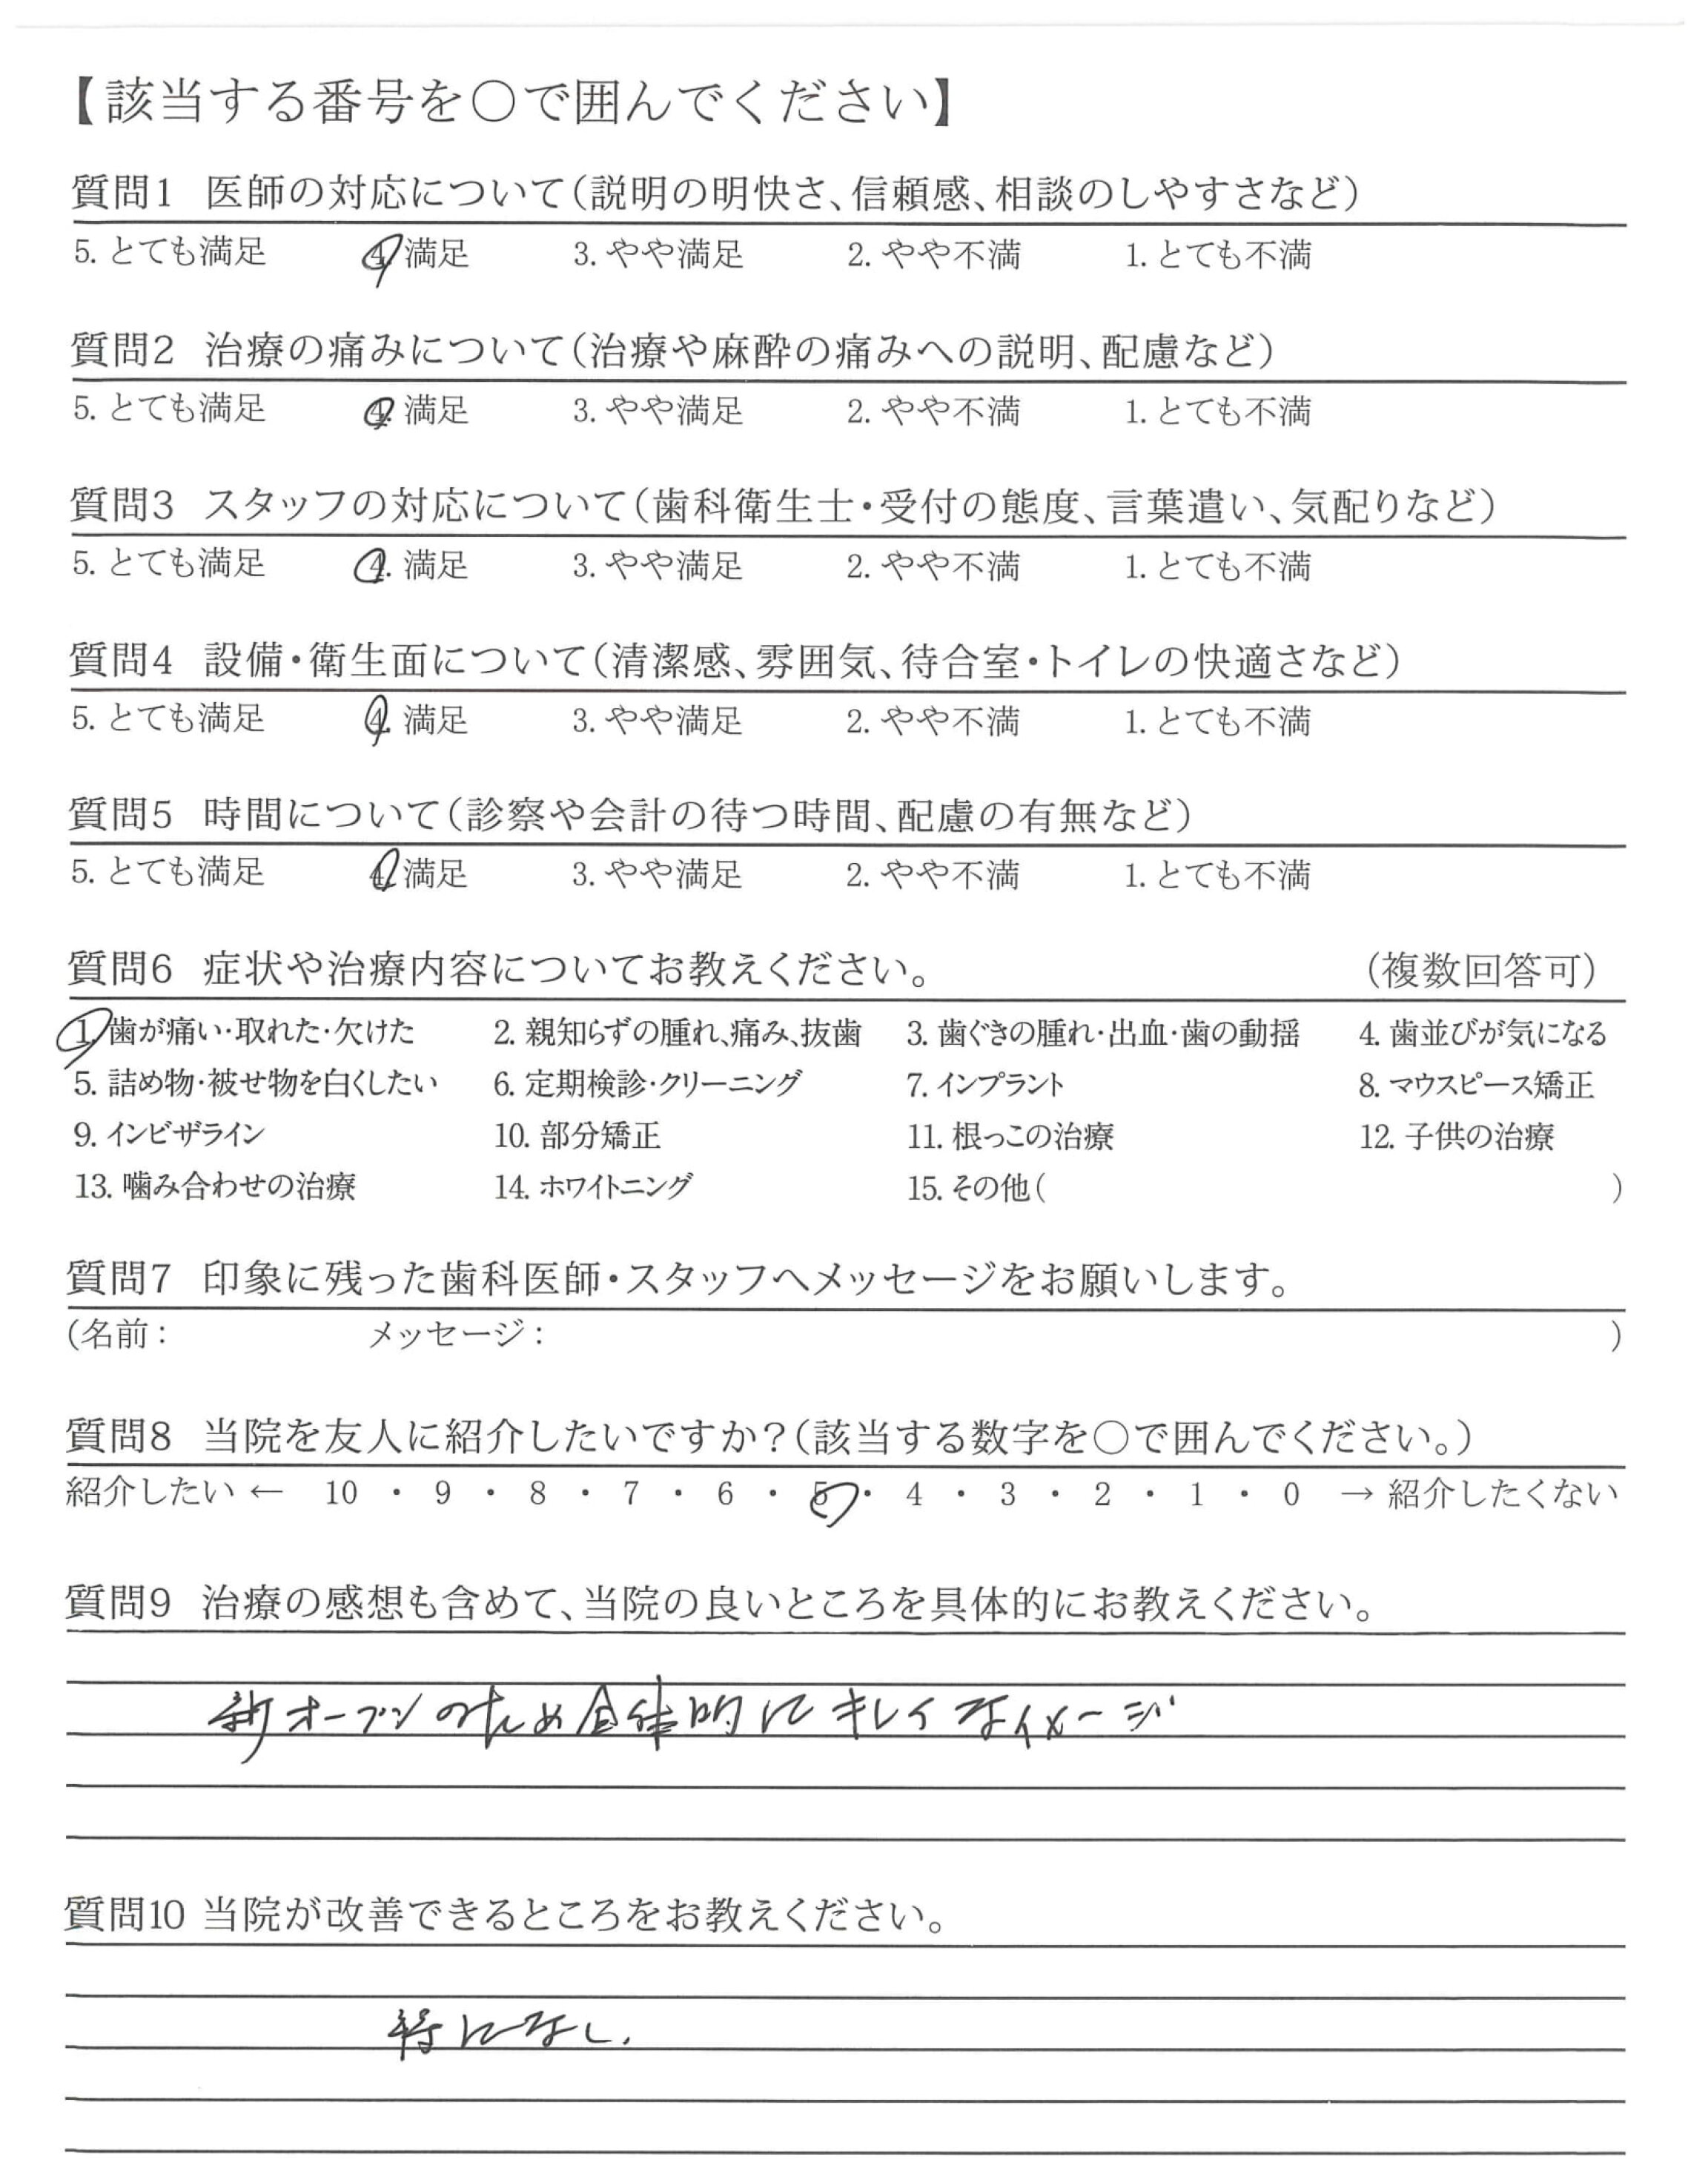 【該当する番号を○で囲んでください】
質問1 医師の対応について(説明の明快さ、信頼感、相談のしやすさなど)
5. とても満足 4. 満足 3. やや満足 2. やや不満 1. とても不満
質問2 治療の痛みについて(治療や麻酔の痛みへの説明、配慮など)
5. とても満足 4. 満足 3. やや満足 2. やや不満 1. とても不満
質問3 スタッフの対応について(歯科衛生士・受付の態度、言葉遣い、気配りなど)
5. とても満足 4. 満足 3. やや満足 2. やや不満 1. とても不満
質問4 設備・衛生面について(清潔感、雰囲気、待合室・トイレの快適さなど)
5. とても満足 4. 満足 3. やや満足 2. やや不満 1. とても不満
質問5 時間について(診察や会計の待つ時間、配慮の有無など)
5. とても満足 4. 満足 3. やや満足 2. やや不満 1. とても不満
質問6 症状や治療内容についてお教えください。 (複数回答可)
1. 歯が痛い・取れた・欠けた 2. 親知らずの腫れ、痛み、抜歯 3. 歯ぐきの腫れ・出血・歯の動揺 4. 歯並びが気になる
5. 詰め物・被せ物を白くしたい 6. 定期検診・クリーニング 7. インプラント 8. マウスピース矯正
9. インビザライン 10. 部分矯正 11. 根っこの治療 12. 子供の治療
13. 噛み合わせの治療 14. ホワイトニング 15. その他( )
質問7 印象に残った歯科医師・スタッフへメッセージをお願いします。
(名前: メッセージ: )
質問8 当院を友人に紹介したいですか?(該当する数字を○で囲んでください。)
紹介したい ← 10 ・ 9 ・ 8 ・ 7 ・ 6 ・ 5 ・ 4 ・ 3 ・ 2 ・ 1 ・ 0 → 紹介したくない
質問9 治療の感想も含めて、当院の良いところを具体的にお教えください。
新オープンのため全体的にキレイなイメージ
質問10 当院が改善できるところをお教えください。
特になし.